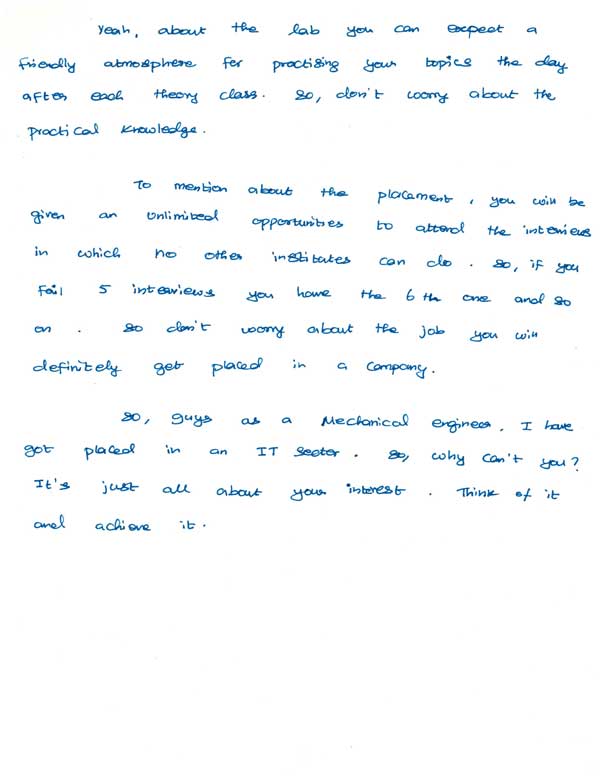 Yeah, about the lab you can expect a
friendly atmosphere for practising your topics the day
after each theory class. So, don't worry about the
practical knowledge.
To mention about the placement, you will be
given an unlimited opportunities to attend the interviews
in which no other institutes can do. So, if you
fail 5 interviews you have the 6th one and so
on. So don't worry about the job you will
definitely get placed in a company.
So, guys as a Mechanical engineer, I have
got placed in an IT Sector. So, why can't you?
It's just all about your interest. Think of it
and achieve it.